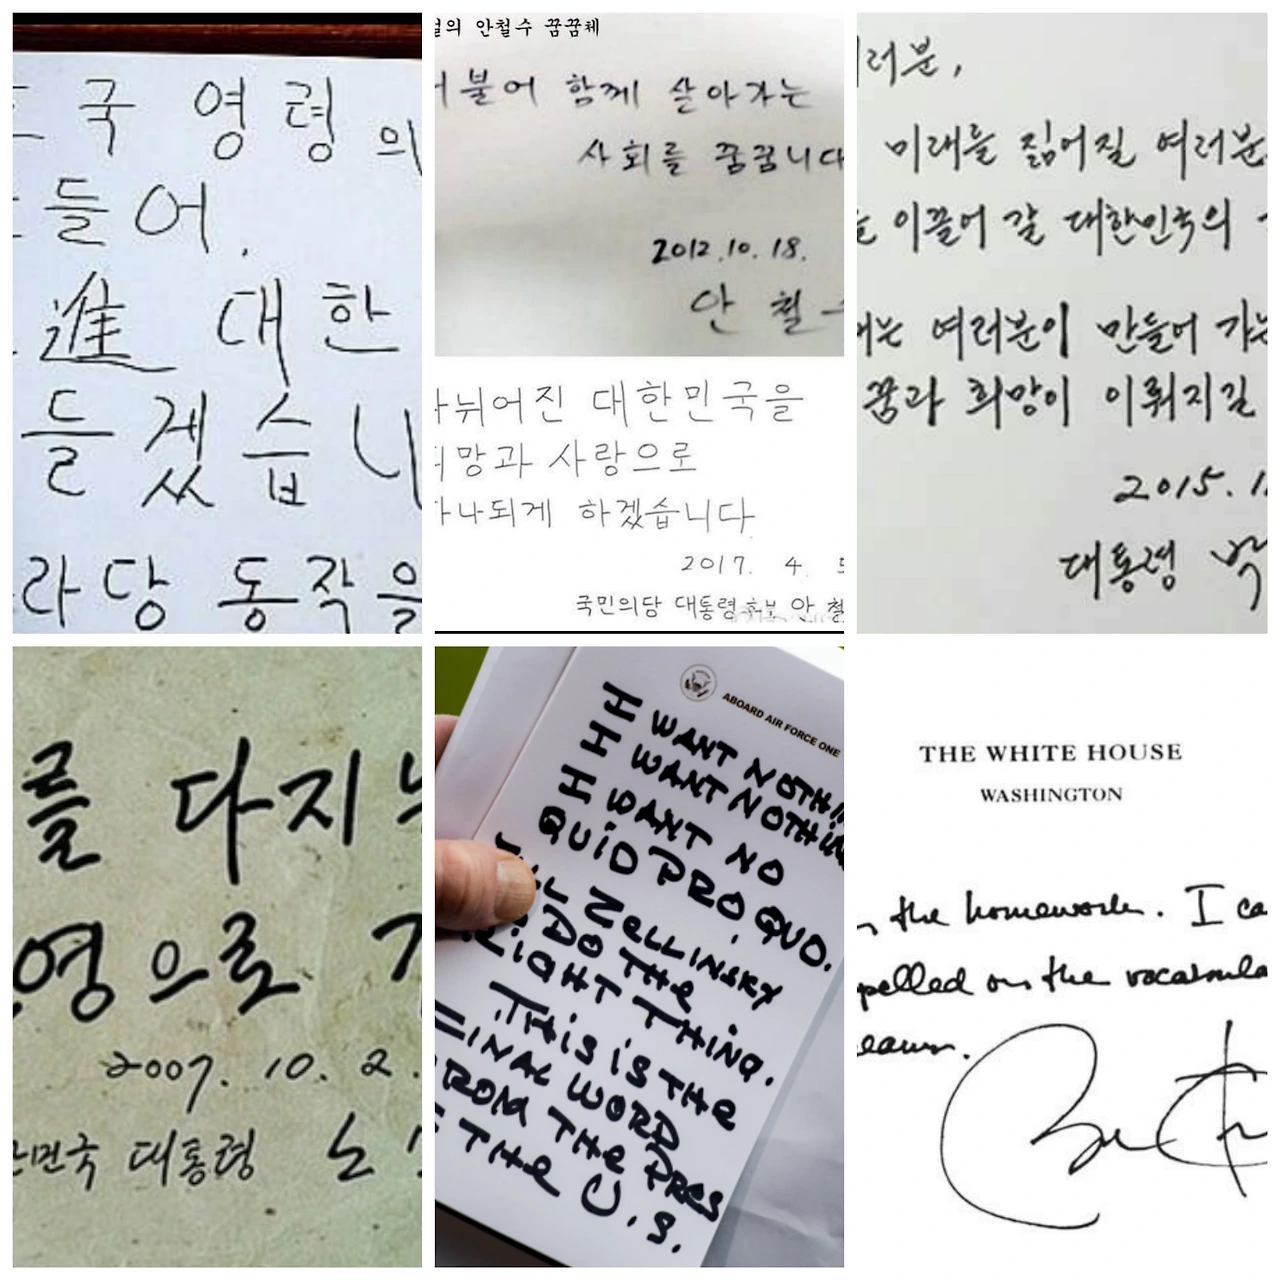 국 영령의
들어.
進 대한
들겠습니
라당 동작을
의 안철수 꿈꿈체
불어 함께 살아가는
사회를 꿈꿉니다
2012.10.18.
안 철
뉘어진 대한민국을
망과 사랑으로
나되게 하겠습니다
2017. 4. 5
국민의당 대통령후보 안 철
러분,
미래를 짊어질 여러분
이끌어 갈 대한민국의
여러분이 만들어 가는
꿈과 희망이 이뤄지길
2015.1
대통령 박
를 다지
영으로
2007. 10. 2.
민국 대통령 노
ABOARD AIR FORCE ONE
I WANT NOTHIN
I WANT NOTHIN
I WANT NO
QUID PRO QUO.
ZELLINSKY
DO THE
RIGHT THING.
THIS IS THE
FINAL WORD
FROM THE PRES
THE U.S.
THE WHITE HOUSE
WASHINGTON
the homework. I ca
pelled on the vocabula